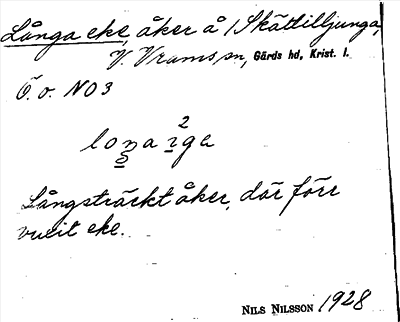 Långa eke, åker å 1 Skättilljunga,
V. Vrams sn, Gärds hd, Krist. l.
Ö. o. NO3
2
loŋa ige
Långsträckt åker, där förr
vuxit eke.
NILS NILSSON 1928